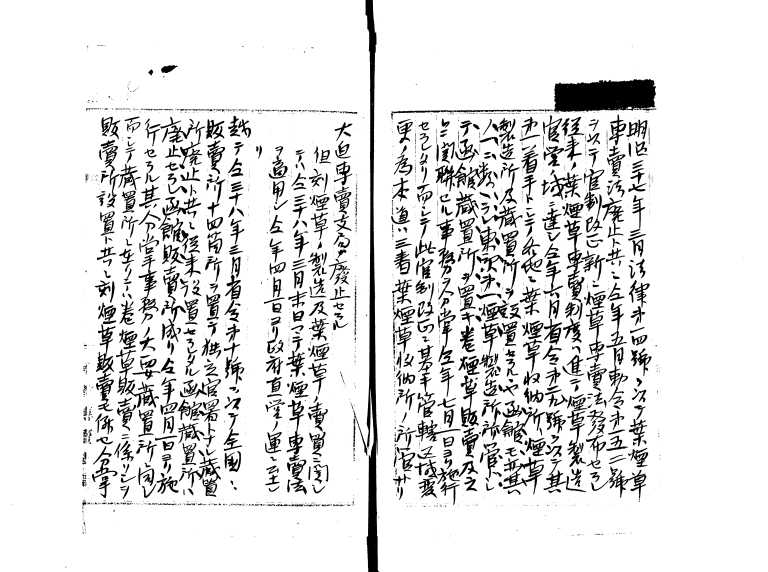 明治三十七年三月法律第一四號ヲ以テ葉煙草
專賣法廢止ト共ニ全年五月勅令第一五二號
ヲ以テ官制改正新ニ煙草專賣法發布セラレ
從来ノ葉煙草專賣制度ハ進テ煙草製造
官營ノ域ニ達シ全年六月省令第二九號ヲ以テ其
第一着手トシテ各地ニ葉煙草收納所、煙草
製造所及藏置所ヲ設置セラルヽヤ函館モ亦其
一ニ
東京第一煙草製造所所管トシ
テ函館藏置所ヲ置キ卷煙草販賣及之
ニ関聯セル事務ヲ分掌シ全年七月一日ヨリ施行
セラレタリ而シテ此官制改正ニ基キ管轄區域變
更ノ為本道ハ三春葉煙草收納所ノ所管ナリ
大迫專賣支局ヲ廢止セラル
但刻煙草ノ製造及葉煙草ノ賣買ニ関シ
テハ全三十八年三月末日マテ葉煙草專賣法
ヲ適用シ全年四月一日ヨリ政府直營ノ運ニ至レ
リ
越テ全三十八年三月省令第十號ヲ以テ全國ニ
販賣所十四箇所ヲ置テ獨立官署トナシ藏置
所廢止ト共ニ從来設置セラレタル函館藏置所ハ
廢止セラレ函館販賣所成リ全年四月一日ヨリ施
行セラル其分掌事務ノ大要藏置所ト同シ
而シテ藏置所ニ在リテハ卷煙草販賣ニ係リシヲ
販賣所設置ト共ニ刻煙草販賣モ係セ分掌